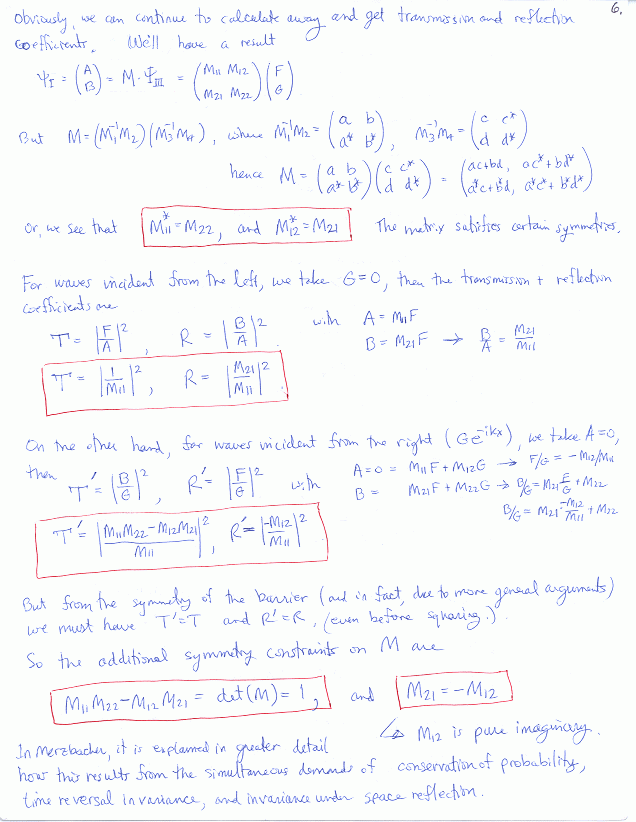 6.
Obviously, we can continue to calculate away and get transmission and reflection
coefficients. We'll have a result
Ψ_I = (A B) = M·Ψ_III = (M11 M12 M21 M22) (F G)
But M = (M1^-1 M2)(M3^-1 M4), where M1^-1 M2 = (a b a* b*), M3^-1 M4 = (c c* d d*)
hence M = (a b a* b*)(c c* d d*) = (ac+bd, ac*+bd* a*c+b*d, a*c*+b*d*)
Or, we see that M11* = M22, and M12* = M21 The matrix satisfies certain symmetries.
For waves incident from the left, we take G=0, then the transmission + reflection
coefficients are
T = |F/A|^2, R = |B/A|^2. with A = M11 F
B = M21 F → B/A = M21/M11
T = |1/M11|^2, R = |M21/M11|^2
On the other hand, for waves incident from the right (Ge^-ikx), we take A=0,
then T' = |B/G|^2, R' = |F/G|^2 with A=0 = M11 F + M12 G → F/G = -M12/M11
B = M21 F + M22 G → B/G = M21 F/G + M22
B/G = M21 · -M12/M11 + M22
T' = |M11 M22 - M12 M21 / M11|^2, R' = |-M12/M11|^2
But from the symmetry of the barrier (and in fact, due to more general arguments)
we must have T'=T and R'=R, (even before squaring.).
So the additional symmetry constraints on M are
M11 M22 - M12 M21 = det(M) = 1, and M21 = -M12
↳ M12 is pure imaginary.
In Merzbacher, it is explained in greater detail
how this results from the simultaneous demands of conservation of probability,
time reversal invariance, and invariance under space reflection.